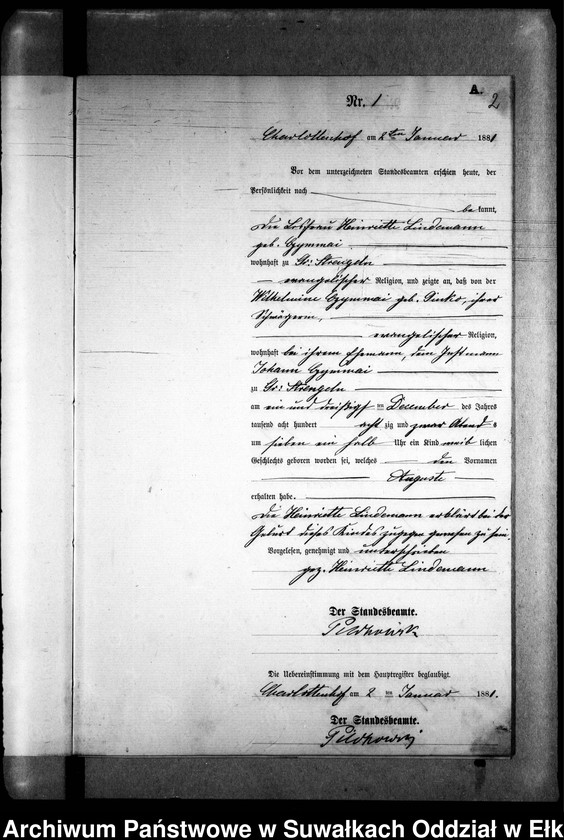 A.
2
Nr. 1
Charlottenhof am 2ten Januar 1881
Vor dem unterzeichneten Standesbeamten erschien heute, der
Persönlichkeit nach
bekannt,
die Losfrau Henriette Lindemann
geb. Czymmai
wohnhaft zu Gr: Strengeln
evangelischer Religion, und zeigte an, daß von der
Wilhelmine Czymmai geb. Pinkio, ihrer
Schwägerin,
evangelischer Religion,
wohnhaft bei ihrem Ehemann, dem Instmann
Johann Czymmai
zu Gr: Strengeln
am ein und dreißigsten December des Jahres
tausend acht hundert acht zig und zwar Abends
um sieben ein halb Uhr ein Kind weiblichen
Geschlechts geboren worden sei, welches den Vornamen
Auguste
erhalten habe.
Die Henriette Lindemann erklärt bei der
Geburt dieses Kindes zugegen gewesen zu sein.
Vorgelesen, genehmigt und unterschrieben
gez. Henriette Lindemann
Der Standesbeamte.
Die Uebereinstimmung mit dem Hauptregister beglaubigt.
Charlottenhof am 2 ten Januar 1881.
Der Standesbeamte.
Archiwum Państwowe w Suwałkach Oddział w Ełk